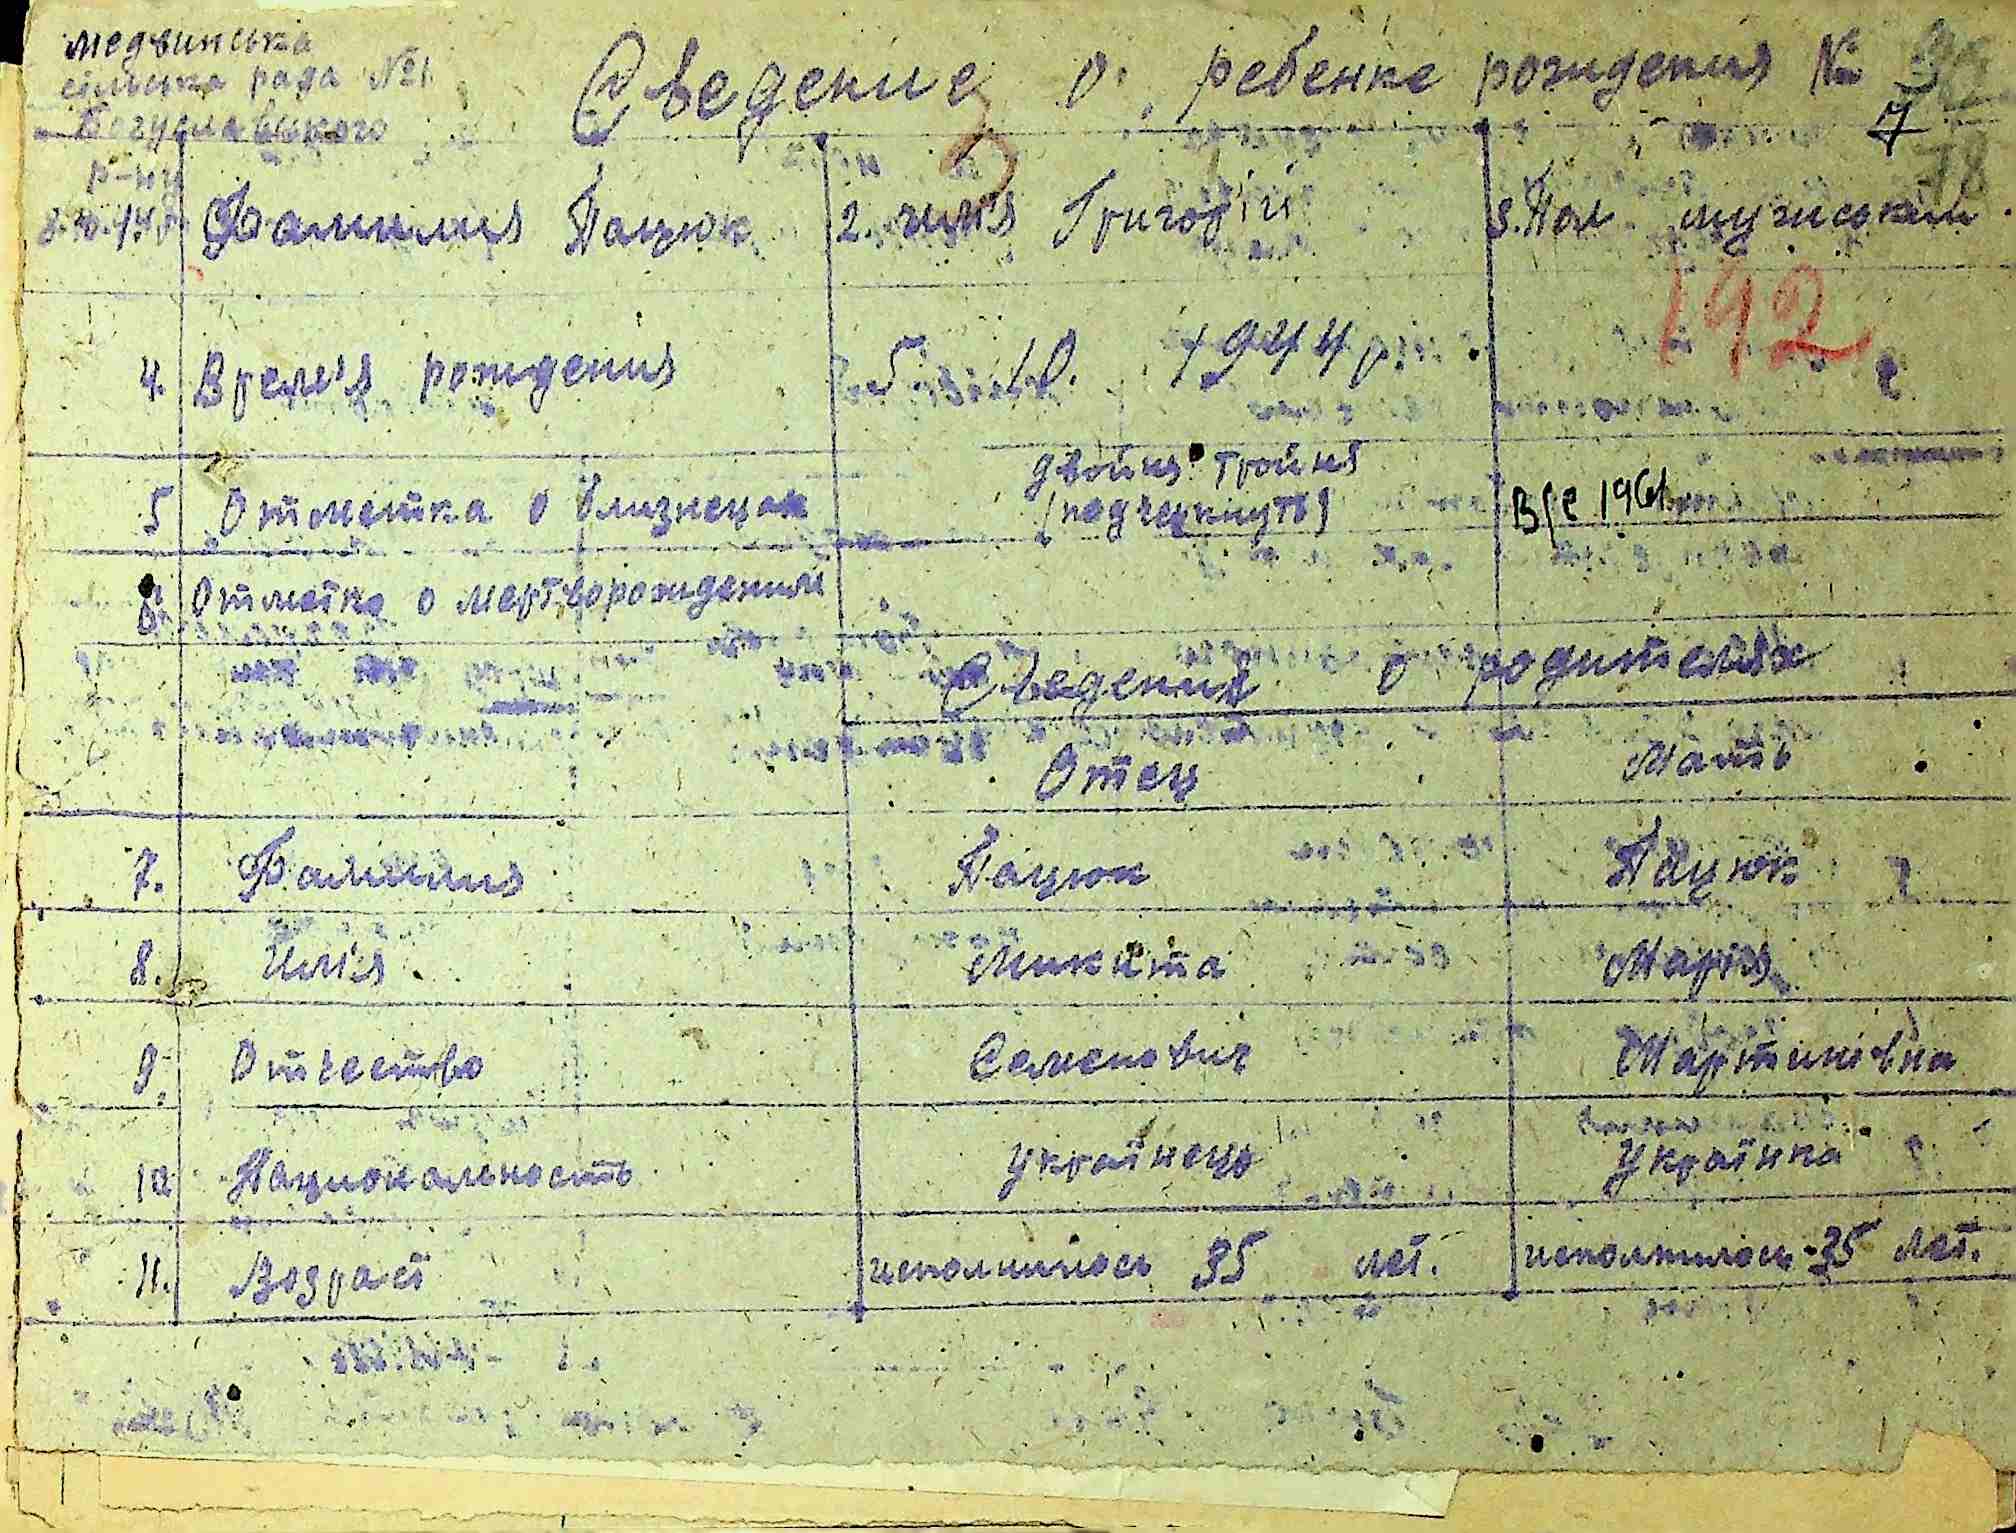 Медвинська
сільська рада №1
Богуславського
р-ну
Сведение о ребенке рождения №
7
78
8.10.44 р
Фамилия Пацюк
2. имя Григорій
3. Пол мужиський
192
4. Время рождения
5 10. 1944 р
5 Отметка о близнецах
двойня тройня
(подчеркнуть)
Вре 1961
6. Отметка о мертворождении
Сведения о родителях
Отец Мать
7. Фамилия Пацюк Пацюк
8. Имія Микита Марія
9. Отчество Семенович Мартинівна
10 Национальность Українець Українка
11. Возраст исполнилось 35 лет. исполнилось 35 лет.